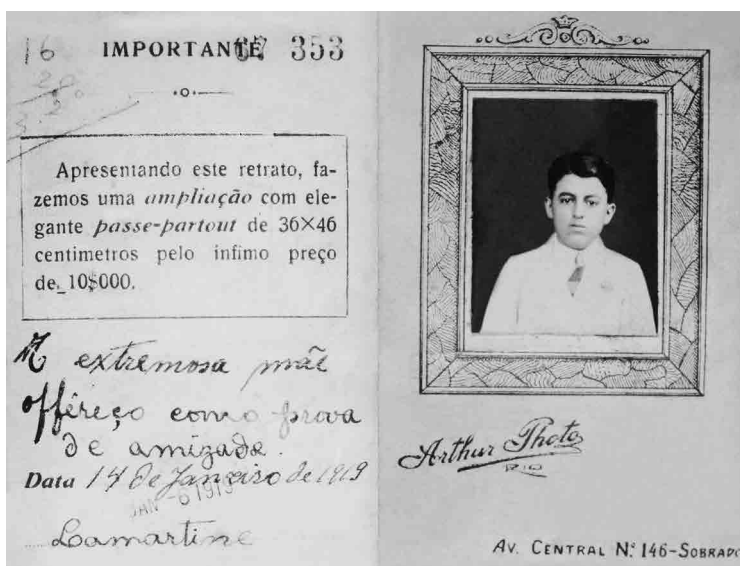 16
IMPORTANTE 353
Apresentando este retrato, fa-
zemos uma ampliação com ele-
gante passe-partout de 36×46
centimetros pelo infimo preço
de 10$000.
A extremosa mãe
offéreço como prova
de amizade.
Data 14 de Janeiro de 1919
JAN -6 1919
Lamartine
Arthur Photo
RIO
AV. CENTRAL N.º 146-SOBRADO